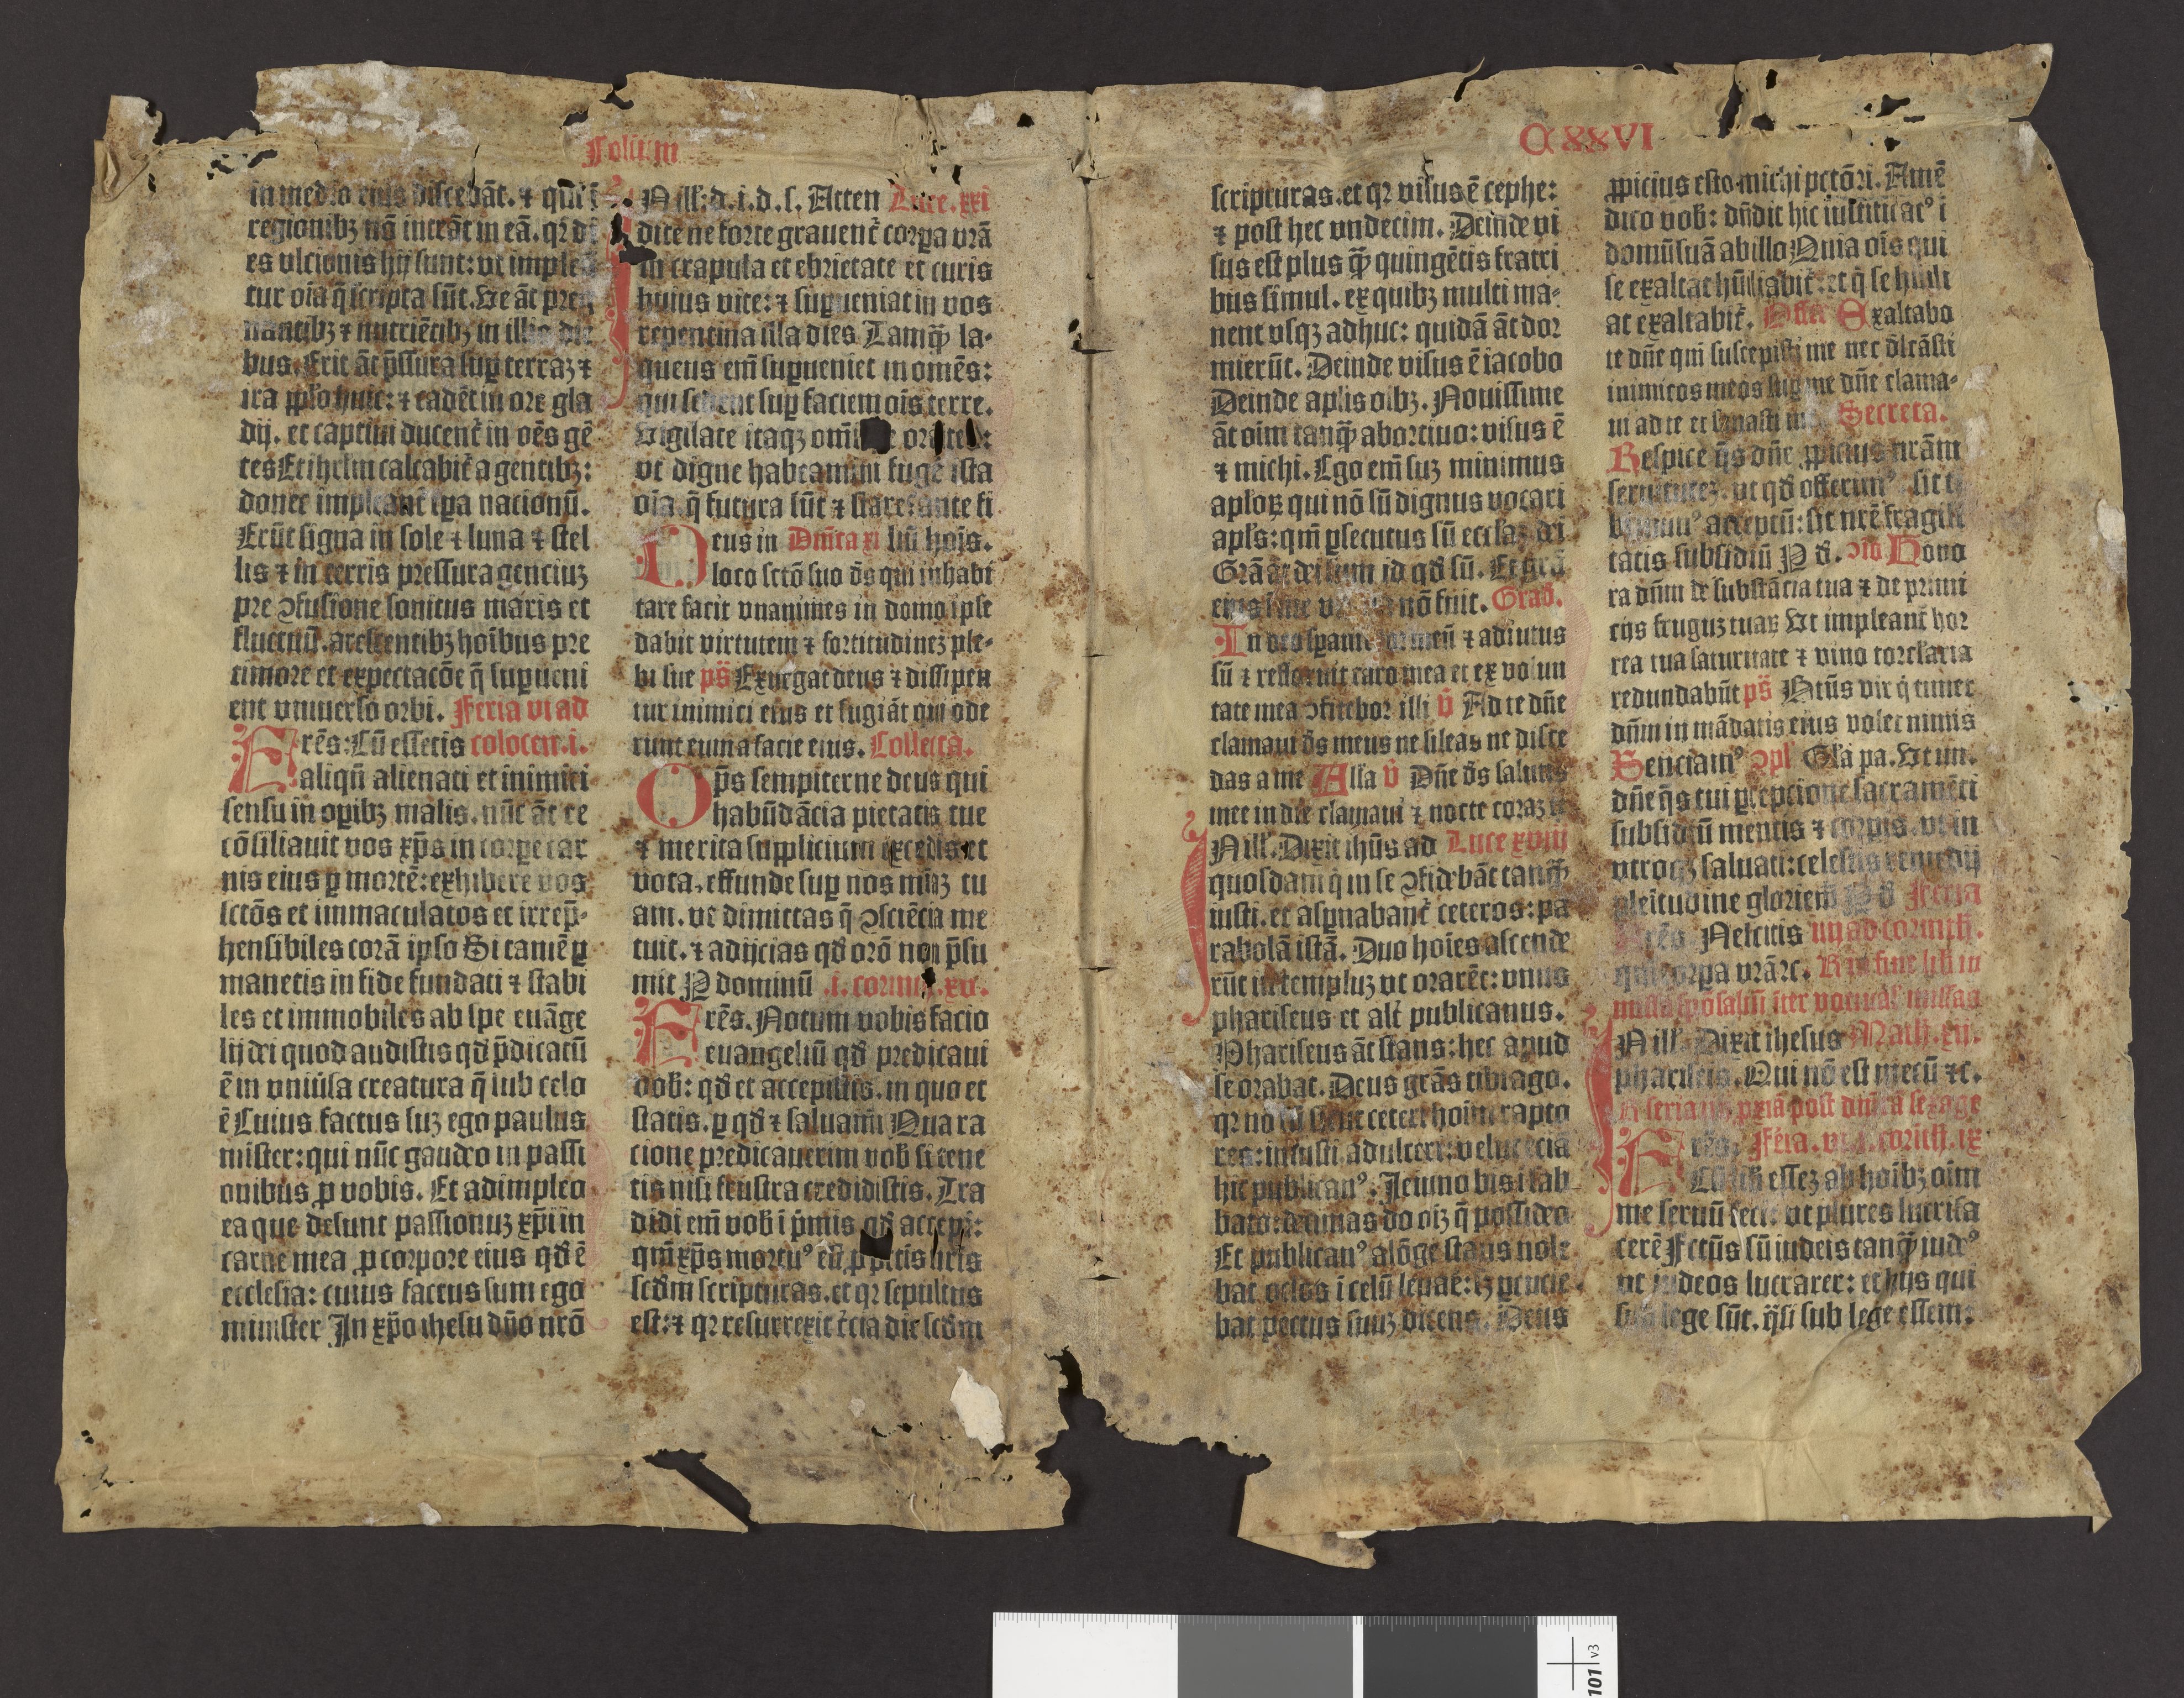 Folium
in medio eius discedāt. ⁊ qui ī
regionibꝫ nō intrēt in eā. qr̄ di
es vlcionis hij sunt: vt implea
tur oīa q̄ scripta sūt. Ve āt preg
nantibꝫ ⁊ nutriētibꝫ in illis die
bus. Erit āt p̄ssura suꝑ terraꝫ ⁊
ira pplo huic: ⁊ cadēt in ore gla
dij. et captiui ducent̄ in oēs gē
tes Et ihrlm calcabit̄ a gentibꝫ:
donec impleant̄ tꝑa nacionū.
Erūt signa in sole ⁊ luna ⁊ stel
lis ⁊ in terris pressura genciuꝫ
pre ꝯfusione sonitus maris et
fluctuū. arescentibꝫ hoībus pre
timore et expectacōe q̄ suꝑueni
ent vniuerso orbi. Feria vi ad
Frēs: Cū essetis colocen. i.
aliqn̄ alienati et inimici
sensu in oꝑibꝫ malis. nūc āt re
cōsiliauit vos xp̄s in corꝑe car
nis eius ꝑ mortē: exhibere vos
sctōs et immaculatos et irrep̄-
hensibiles corā ipso Si tamē ꝑ
manetis in fide fundati ⁊ stabi
les et immobiles ab spe euāge
lij dei quod audistis qd̄ p̄dicatū
ē in vniūsa creatura q̄ sub celo
ē Cuius factus suꝫ ego paulus
mister: qui nūc gaudeo in passi
onibus ꝓ vobis. Et adimpleo
ea que desunt passionuꝫ xp̄i in
carne mea ꝓ corpore eius qd̄ ē
ecclesia: cuius factus sum ego
minister In xp̄o ihesu dn̄o nrō
In ill: d. i. d. s. Atten Luce. xxi
dite ne forte grauent̄ corꝑa vrā
in crapula et ebrietate et curis
huius vite: ⁊ suꝑueniat in vos
repentina illa dies Tamq̄ la-
queus em̄ suꝑueniet in omēs:
qui sedent suꝑ faciem ois terre.
Vigilate itaqꝫ
vt digne habeamini fugē ista
oīa q̄ futura sūt ⁊ stare ante fi
Deus in Dn̄ica xi liū hoīs.
loco sctō suo ds̄ qui inhabi
tare facit vnanimes in domo ipse
dabit virtutem ⁊ fortitudineꝫ ple-
bi sue ps̄ Exurgat deus ⁊ dissipen
tur inimici eius et fugiāt qui ode
runt eum a facie eius. Collecta.
Op̄s sempiterne deus qui
habūdācia pietatis tue
⁊ merita supplicium excedis et
vota. effunde suꝑ nos mīaꝫ tu
am. vt dimittas q̄ ꝯsciēcia me
tuit. ⁊ adijcias qd̄ orō non p̄su
mit P dominū .i. corint. xv.
Frēs. Notum vobis facio
euangeliū qd̄ predicaui
vob: qd̄ et accepistis. in quo et
statis. ꝑ qd̄ ⁊ saluam̄i Qua ra
cione predicauerim vob si tene
tis nisi frustra credidistis. Tra
didi em̄ vob ī p̄mis qd̄ accepi:
qm̄ xp̄s mortuꝰ ē ꝓ pctis nr̄is
scdm scripturas. et qr̄ sepultus
est: ⁊ qr̄ resurrexit t̄cia die scdm
CXXVI
scripturas. et qr̄ visus ē cephe:
⁊ post hec vndecim. Deinde vi
sus est plus q̄ quingētis fratri
bus simul. ex quibꝫ multi ma-
nent vsqꝫ adhuc: quidā āt dor
mierūt. Deinde visus ē iacobo
Deinde aplis oībꝫ. Nouissime
āt oīm tanq̄ abortiuo: visus ē
⁊ michi. Ego em̄ suꝫ minimus
aploꝝ qui nō sū dignus vocari
apls: qm̄ ꝑsecutus sū ecclaꝫ di
Grā āt dei sum id qd̄ sū. Et grā
eius nō fuit. Grad.
In deo sꝑauit cor meū ⁊ adiutus
sū ⁊ refloruit caro mea et ex volun
tate mea ꝯfitebor illi v̄ Ad te dn̄e
clamaui ds̄ meus ne sileas ne disce
das a me Alla v̄ Dn̄e ds̄ salutis
mee in die clamaui ⁊ nocte coraꝫ te
In ill. Dixit ihūs ad Luce xviii
quosdam q̄ in se ꝯfidebāt tanq̄
iusti. et asꝑnabant̄ ceteros: pa
rabolā istā. Duo hoīes ascende
rūt in templuꝫ vt orarēt: vnus
phariseus et alt̄ publicanus.
Phariseus āt stans: hec apud
se orabat. Deus grās tibi ago.
qr̄ nō sū sicut ceteri hoīm rapto
res: iniusti adulteri: velut eciā
hic publicanꝰ. Ieiuno bis ī sab
bato: decimas do oīꝫ q̄ possideo
Et publicanꝰ alōge stans nole
bat oclos ī celū leuare: sꝫ ꝑcucie
bat pectus suuꝫ dicens. Deus
ꝓpicius esto michi pctōri. Amē
dico vob: dn̄dit hic iustificatꝰ ī
domū suā ab illo Quia oīs qui
se exaltat hūiliabit̄: et q̄ se hūili
at exaltabit̄. Offer Exaltabo
te dn̄e qm̄ suscepisti me nec dlcāsti
inimicos meos suꝑ me dn̄e clama-
ui ad te et sanasti me Secreta.
Respice q̄s dn̄e ꝓpicius nrām
seruituteꝫ. vt qd̄ offerimꝰ sit ti
bi munꝰ acceptū: sit nrē fragili
tatis subsidiū P d̄. ꝯio Hono
ra dn̄m de substācia tua ⁊ de primi
cijs fruguꝫ tuaꝝ Vt impleant̄ hor
rea tua saturitate ⁊ vino torclaria
redundabūt ps̄ Btūs vir q̄ timet
dn̄m in mādatis eius volet nimis
Senciamꝰ ꝯpl Gla pa. Vt im.
dn̄e q̄s tui ꝑcepcione sacramēti
subsidiū mentis ⁊ corꝑis. vt in
vtroqꝫ saluati: celestis remedij
pleitudine gloriem̄ P d̄ Feria
Frēs Nescitis iiij ad corinth.
qm̄ corꝑa vrā rc.
In ill. Dixit ihesus Math. xij.
phariseis. Qui nō est mecū ⁊c.
Frēs. Feria. vi. i. corinth. ix
Cū liber esseꝫ ab hoībꝫ oīm
me seruū feci: vt plures lucrifa
cerē Fctūs sū iudeis tanq̄ iudꝰ
vt iudeos lucrarer: et hijs qui
sub lege sūt. q̄si sub lege essem:
101 v3